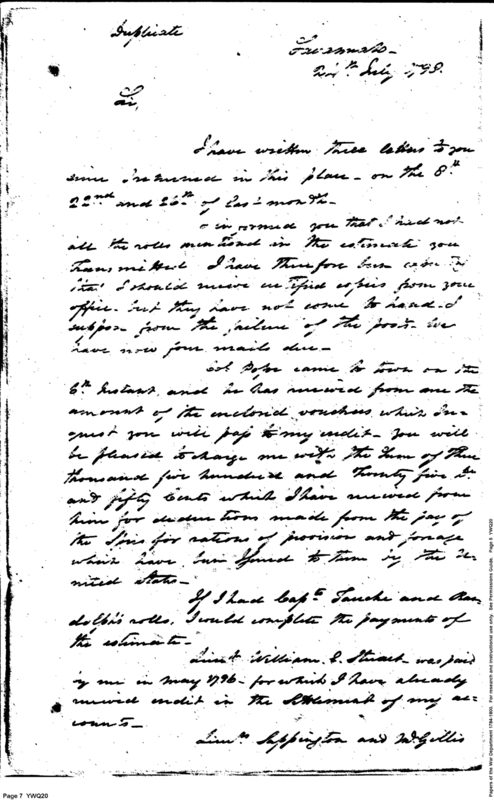 Duplicate
Savannah
July 1798.
Sir,
I have written three letters to you
since I returned in this place - on the 8th
22nd and 26th of last month.
I informed you that I had not
all the rolls mentioned in the estimate you
transmitted. I have therefore been
that I should receive certified copies from your
office - but they have not come to hand - I
suppose from the failure of the posts - we
have now four mails due -
Pope came to town on the
6th Instant, and he has received from me the
amount of the inclosed vouchers which I re-
quest you will pass to my credit - you will
be pleased to charge me with the sum of Three
thousand five hundred and Twenty five Ds
and fifty Cents which I have received from
him for deductions made from the pay of
the Spies for rations of provision and forage
which have been issued to them by the U-
nited States -
If I had Capt. Touche and Ran-
dolph's rolls, I would complete the payments of
the estimate -
Lieut. William C. Stuart was paid
by me in May 1796 - for which I have already
received credit in the Settlement of my ac-
counts -
Lieuts Sappington and McGillis
Page 7 YWQ20
Papers of the War Department 1784-1800. For research and instructional use only. See Permissions Guide. Page 5 YWQ20